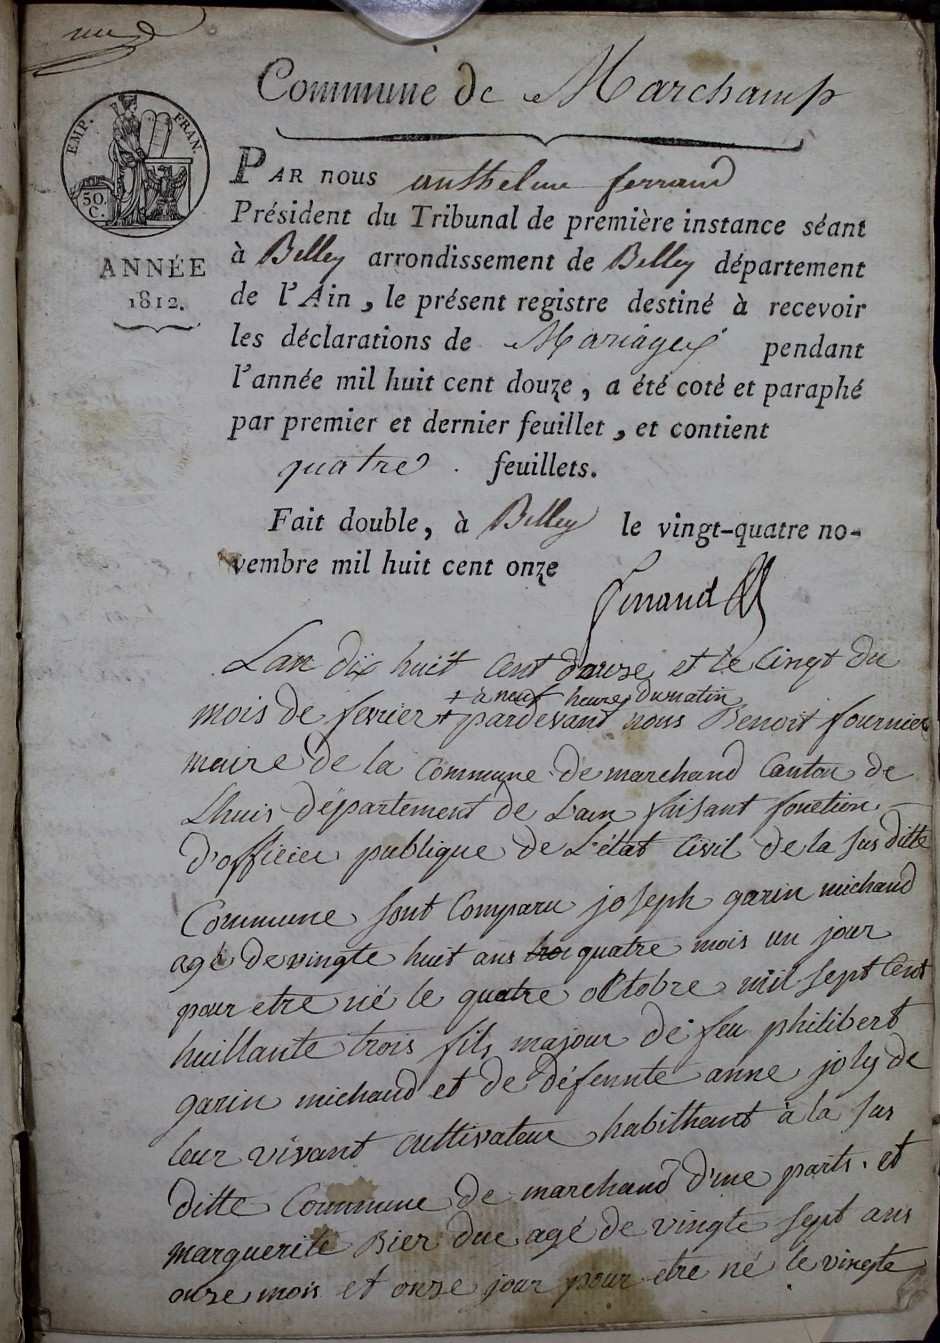 Commune de Marchamp
EMP. FRAN.
50.
C.
ANNÉE
1812.
PAR nous anthelme ferrand
Président du Tribunal de première instance séant
à Belley arrondissement de Belley département
de l'Ain, le présent registre destiné à recevoir
les déclarations de Mariages pendant
l'année mil huit cent douze, a été coté et paraphé
par premier et dernier feuillet, et contient
quatre feuillets.
Fait double, à Belley le vingt-quatre no-
vembre mil huit cent onze
ferrand
Lan dix huit Cent douze et le vingt du
+ à neuf heures du matin
mois de fevrier + pardevant nous Benoit fournier
maire de la Commune de marchand Canton de
Lhuis département de Lain faisant fonction
d'officier publique de L'état Civil de la sus ditte
Commune sont Comparu joseph garin michaud
agé de vingte huit ans quatre mois un jour
pour etre né le quatre octobre mil sept Cent
huillante trois fils majour de feu philibert
garin michaud et de défunte anne joly de
leur vivant cultivateur habithant à la sus
ditte Commune de marchand d'une parts. et
marguerite Bier due agé de vingte sept ans
onze mois et onze jour pour etre né le vingte